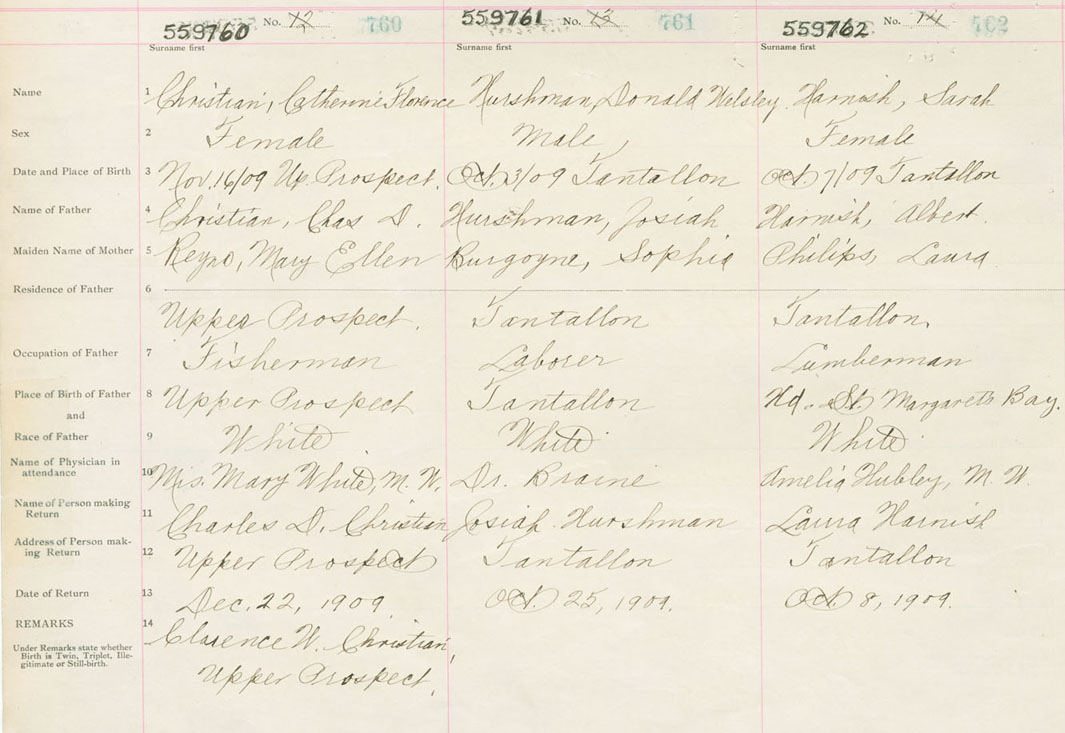 559760 No. 12 760 559761 No. 13 761 559762 No. 14 762
Surname first Surname first Surname first
Name 1 Christian, Catherine Florence Hurshman, Donald Welsley Harnish, Sarah
Sex 2 Female Male, Female
Date and Place of Birth 3 Nov. 16/09 Up. Prospect. Oct. 3/09 Tantallon Oct. 7/09 Tantallon
Name of Father 4 Christian, Chas D. Hurshman, Josiah Harnish, Albert.
Maiden Name of Mother 5 Reyno, Mary Ellen Burgoyne, Sophia Philips, Laura
Residence of Father 6
Upper Prospect. Tantallon Tantallon.
Occupation of Father 7 Fisherman Laborer Lumberman
Place of Birth of Father 8 Upper Prospect Tantallon Hd. St. Margarets Bay.
and
Race of Father 9 White White White
Name of Physician in
attendance 10 Mrs. Mary White, M. W. Dr. Braine Amelia Hubley, M. W.
Name of Person making
Return 11 Charles D. Christian Josiah Hurshman Laura Harnish
Address of Person mak-
ing Return 12 Upper Prospect Tantallon Tantallon
Date of Return 13 Dec. 22, 1909 Oct. 25, 1909. Oct. 8, 1909.
REMARKS 14 Clarence W. Christian,
Under Remarks state whether
Birth is Twin, Triplet, Ille-
gitimate or Still-birth.
Upper Prospect.